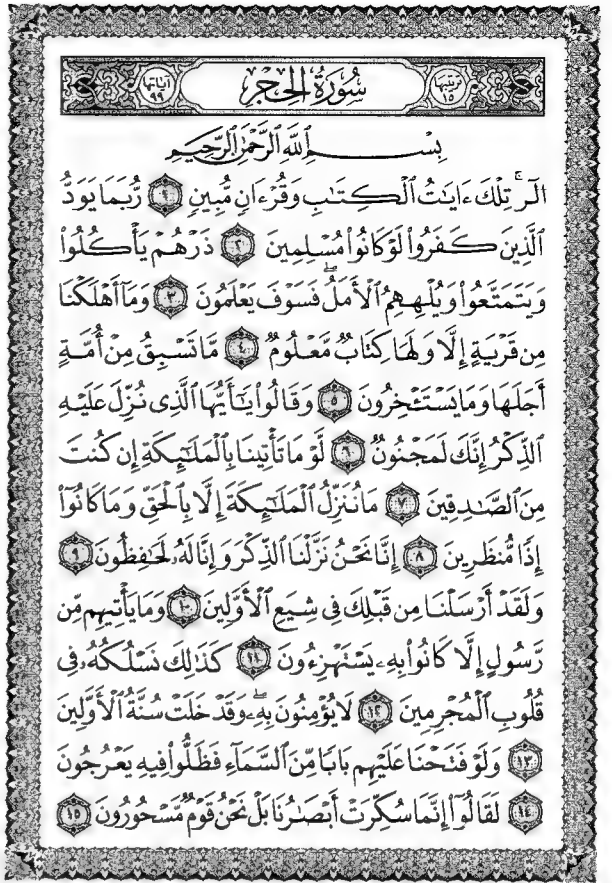 ترتيبها ١٥ سُورَةُ الحِجْرِ آياتها ٩٩
بِسْمِ ٱللَّهِ ٱلرَّحْمَٰنِ ٱلرَّحِيمِ
الٓرۚ تِلْكَ ءَايَٰتُ ٱلْكِتَٰبِ وَقُرْءَانٍ مُّبِينٍ ١ رُّبَمَا يَوَدُّ
ٱلَّذِينَ كَفَرُوا۟ لَوْ كَانُوا۟ مُسْلِمِينَ ٢ ذَرْهُمْ يَأْكُلُوا۟
وَيَتَمَتَّعُوا۟ وَيُلْهِهِمُ ٱلْأَمَلُۖ فَسَوْفَ يَعْلَمُونَ ٣ وَمَآ أَهْلَكْنَا
مِن قَرْيَةٍ إِلَّا وَلَهَا كِتَابٌ مَّعْلُومٌ ٤ مَّا تَسْبِقُ مِنْ أُمَّةٍ
أَجَلَهَا وَمَا يَسْتَـْٔخِرُونَ ٥ وَقَالُوا۟ يَٰٓأَيُّهَا ٱلَّذِى نُزِّلَ عَلَيْهِ
ٱلذِّكْرُ إِنَّكَ لَمَجْنُونٌ ٦ لَّوْ مَا تَأْتِينَا بِٱلْمَلَٰٓئِكَةِ إِن كُنتَ
مِنَ ٱلصَّٰدِقِينَ ٧ مَا نُنَزِّلُ ٱلْمَلَٰٓئِكَةَ إِلَّا بِٱلْحَقِّ وَمَا كَانُوٓا۟
إِذًا مُّنظَرِينَ ٨ إِنَّا نَحْنُ نَزَّلْنَا ٱلذِّكْرَ وَإِنَّا لَهُۥ لَحَٰفِظُونَ ٩
وَلَقَدْ أَرْسَلْنَا مِن قَبْلِكَ فِى شِيَعِ ٱلْأَوَّلِينَ ١٠ وَمَا يَأْتِيهِم مِّن
رَّسُولٍ إِلَّا كَانُوا۟ بِهِۦ يَسْتَهْزِءُونَ ١١ كَذَٰلِكَ نَسْلُكُهُۥ فِى
قُلُوبِ ٱلْمُجْرِمِينَ ١٢ لَا يُؤْمِنُونَ بِهِۦۖ وَقَدْ خَلَتْ سُنَّةُ ٱلْأَوَّلِينَ
١٣ وَلَوْ فَتَحْنَا عَلَيْهِم بَابًا مِّنَ ٱلسَّمَآءِ فَظَلُّوا۟ فِيهِ يَعْرُجُونَ
١٤ لَقَالُوٓا۟ إِنَّمَا سُكِّرَتْ أَبْصَٰرُنَا بَلْ نَحْنُ قَوْمٌ مَّسْحُورُونَ ١٥